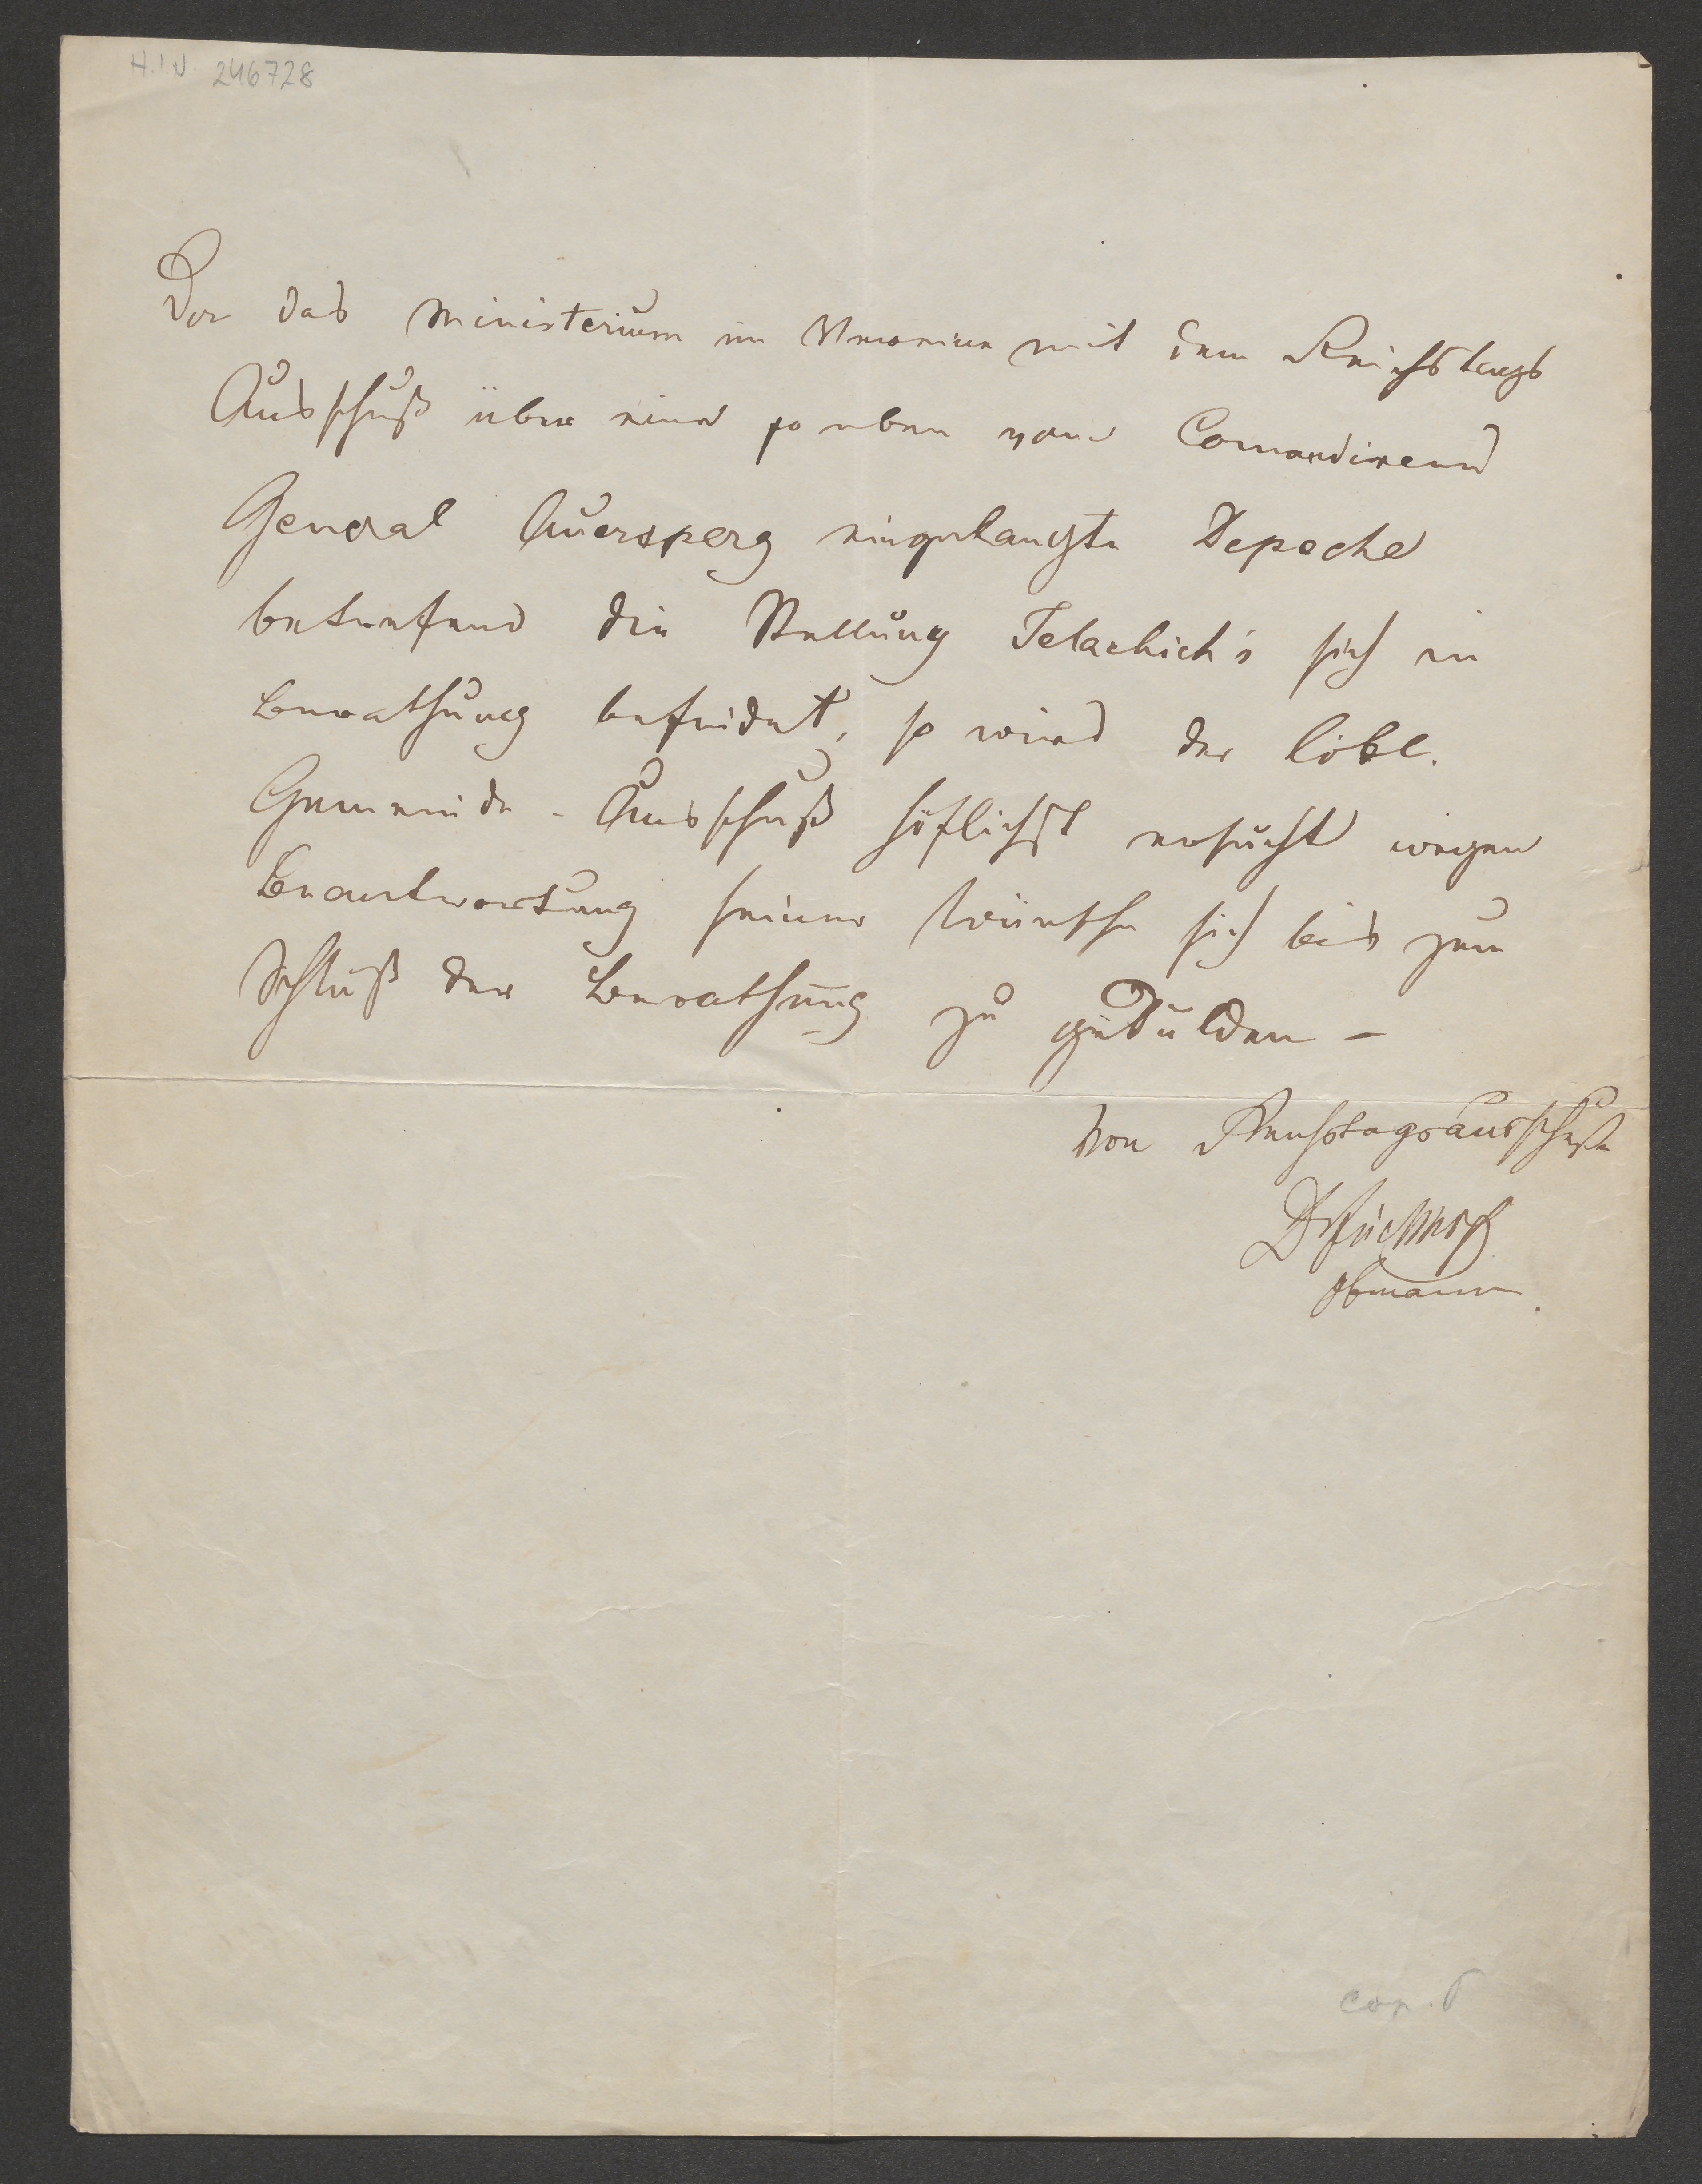 H.I.N. 246728
Da das Ministerium im Vereine mit dem Reichstags
Ausschuß über eine so eben vom Comandirend
General Auersperg eingelangte Depeche
betreffend die Stellung Jelachich's sich in
Berathung befindet, so wird der löbl.
Gemeinde-Ausschuß höflichst ersucht wegen
Beantwortung seiner Wünsche sich bis zum
Schluß der Berathung zu gedulden –
Von Reichstagsausschuße
Dr Fischhof
Obmann.